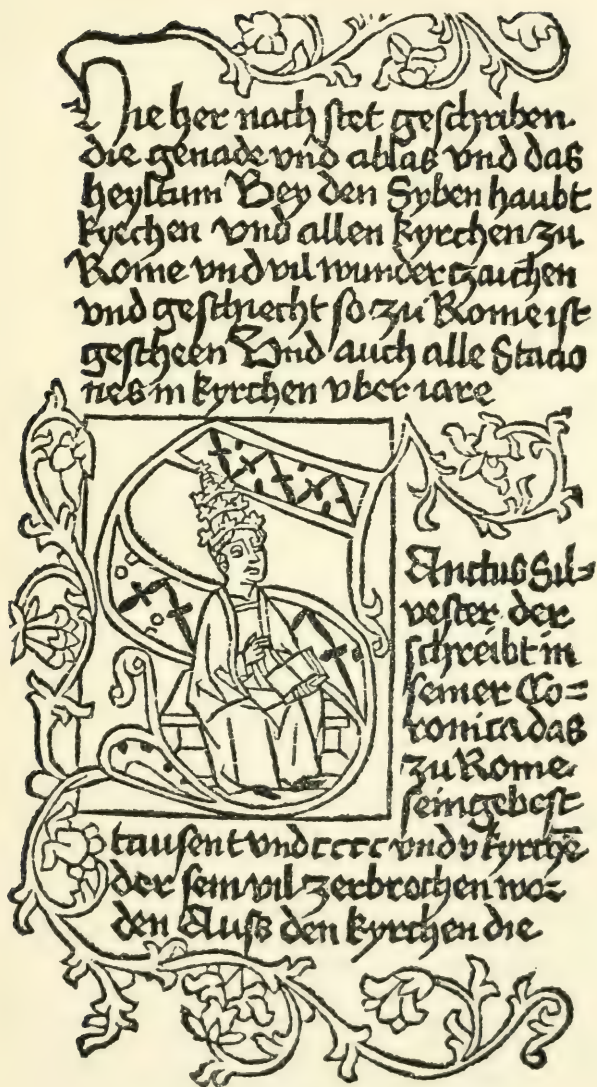 Hie her nach stet geschriben
die genade vnd ablas vnd das
heyltum Bey den Syben haubt
kyrchen vnd allen kyrchen zu
Rome vnd vil wunder tzaichen
vnd geschiecht so zu Rome ist
gescheen Vnd auch alle Stacio
nes in kyrchen vber iare
Sanctus Sil=
vester der
schreibt in
seiner Co=
ronica das
zu Rome
sein gebest
tausent vnd cccc vnd v kyrchē
der sein vil zerbrochen wor
den Auss den kyrchen die